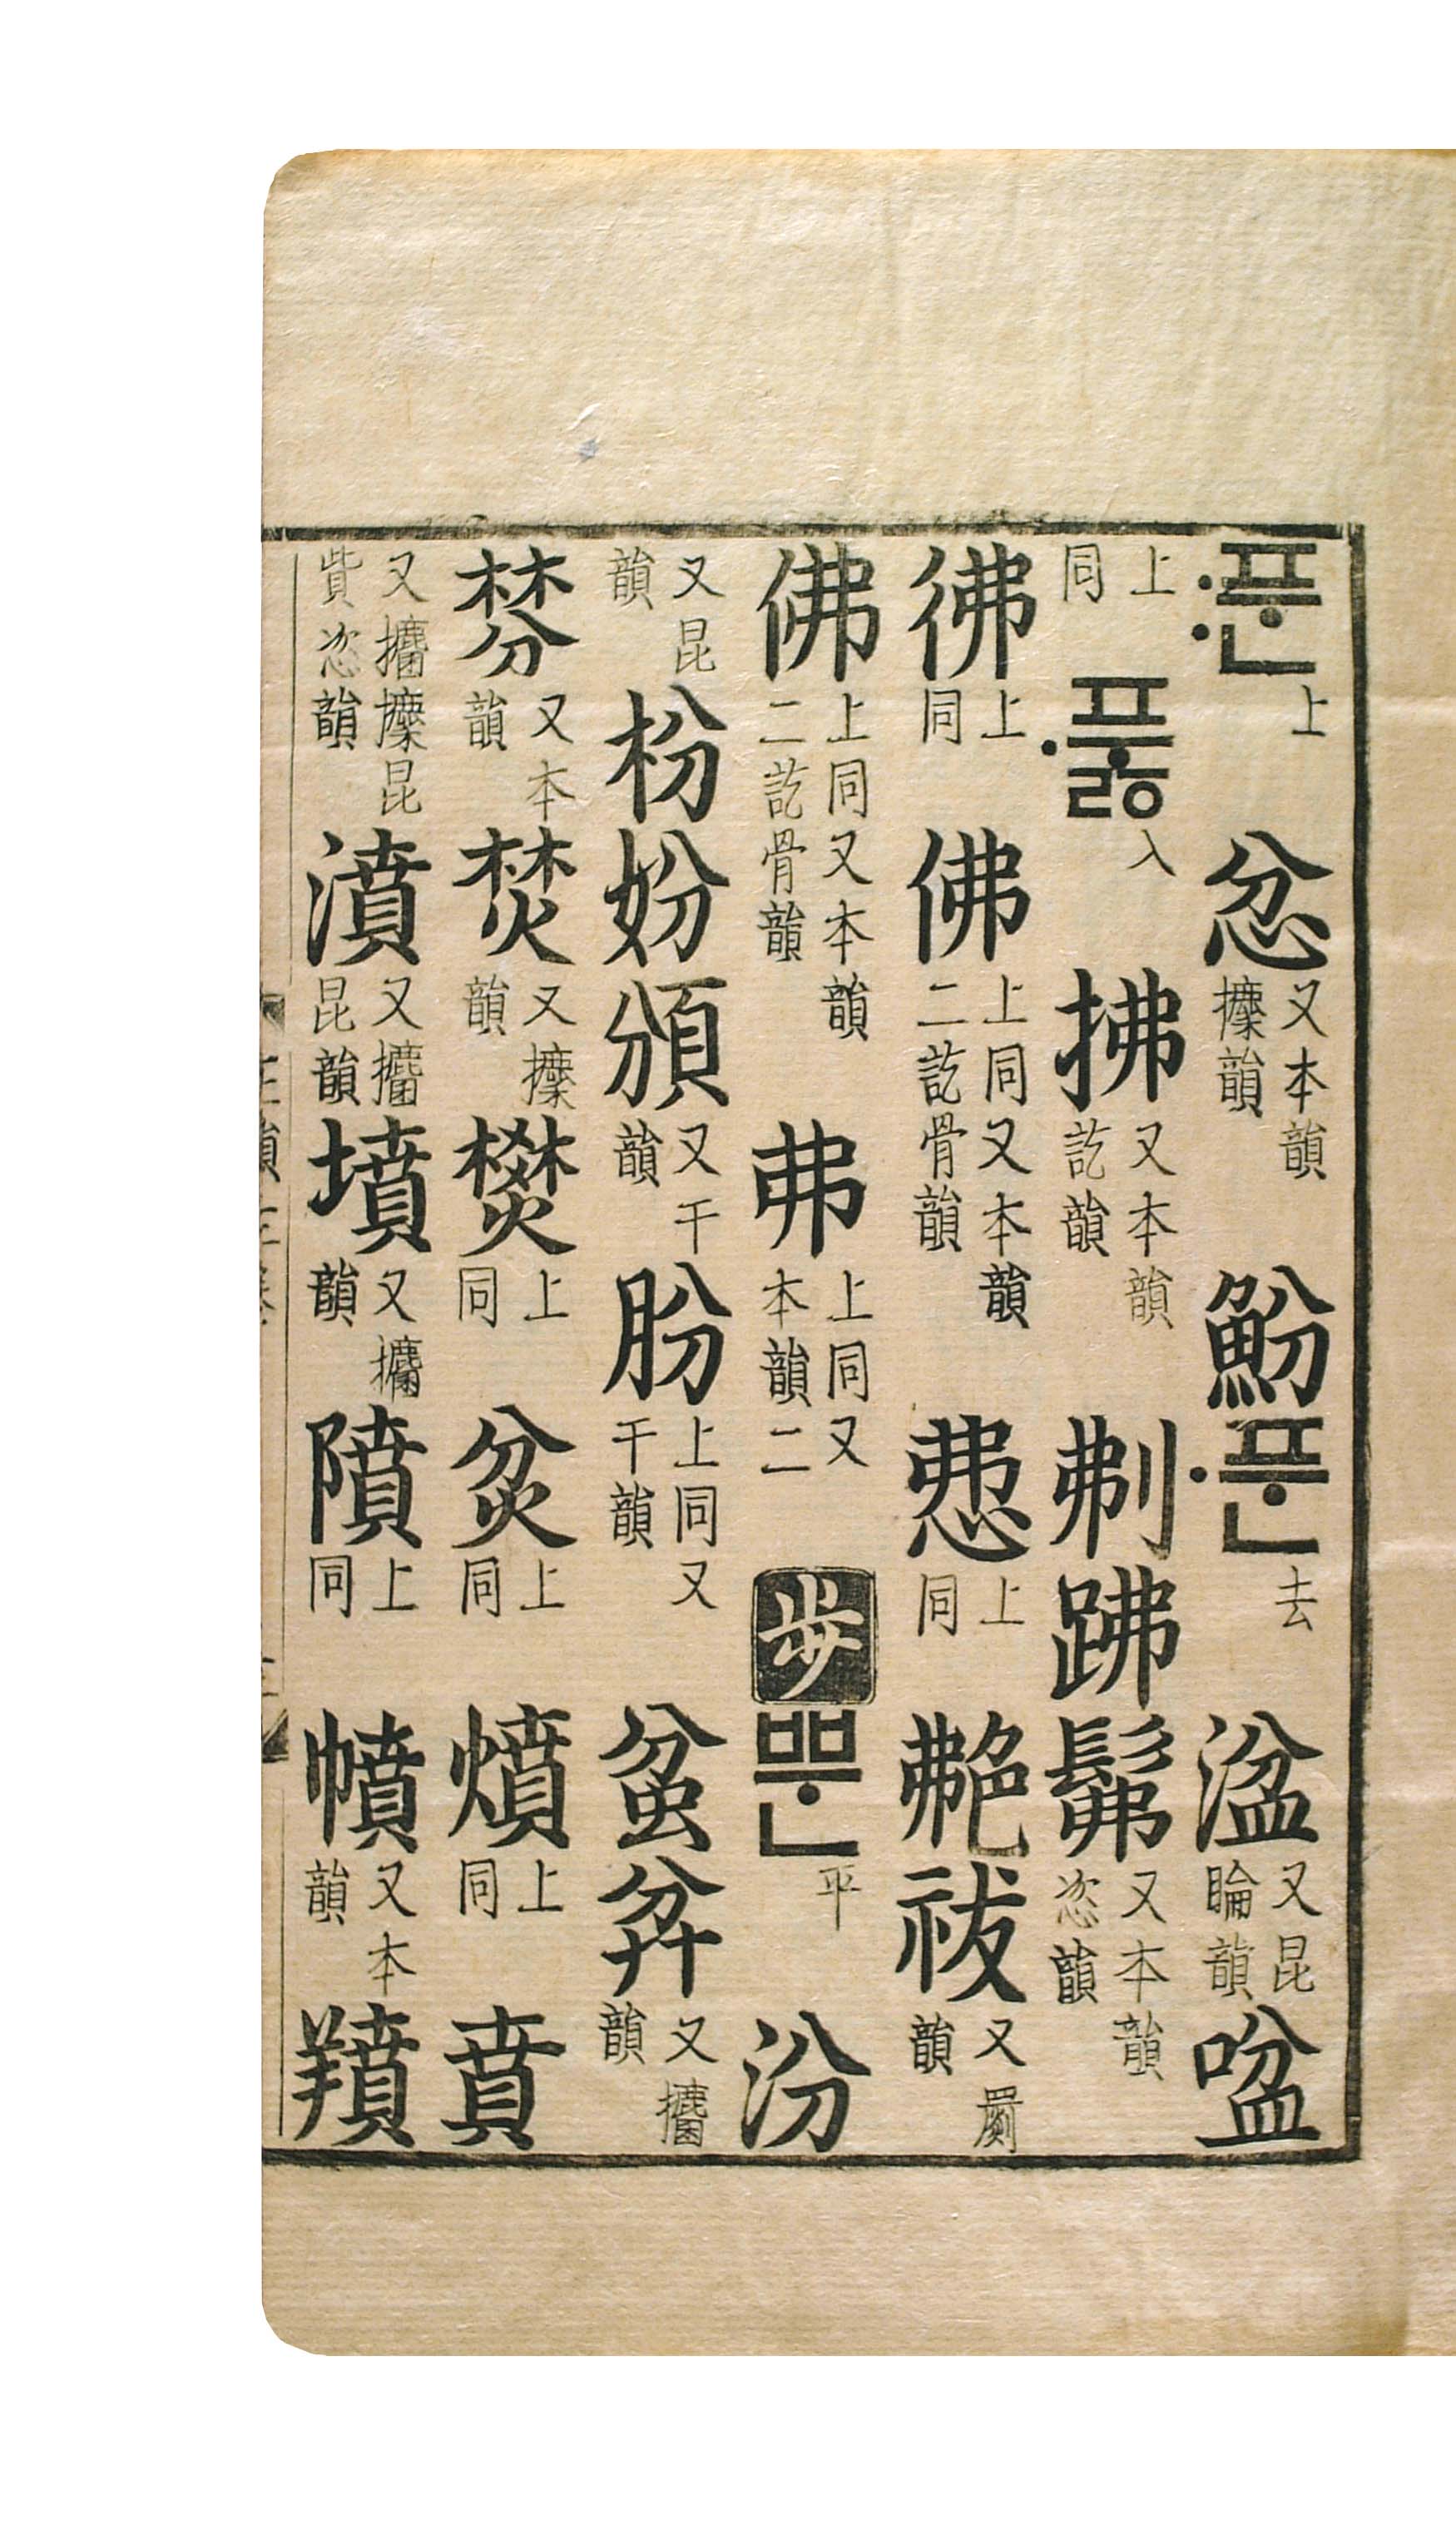 〯푼上忿又本韻攈韻魵〮푼去湓又昆睔韻
上同〮푸ᇙ入拂又本韻訖韻刜髴又本韻恣韻
彿上同佛上同又本韻二訖骨韻上同艴祓又罽韻
佛上同又本韻二訖骨韻弗上同又本韻二步뿐平汾
又昆韻枌妢頒又干韻肦上同又干韻蚠弅又攟韻
棼又本韻焚又攈韻燓上同炃上同燌上同賁
又攟攈昆貲恣韻濆又攟昆韻墳又攟韻隫上同幩又本韻羵